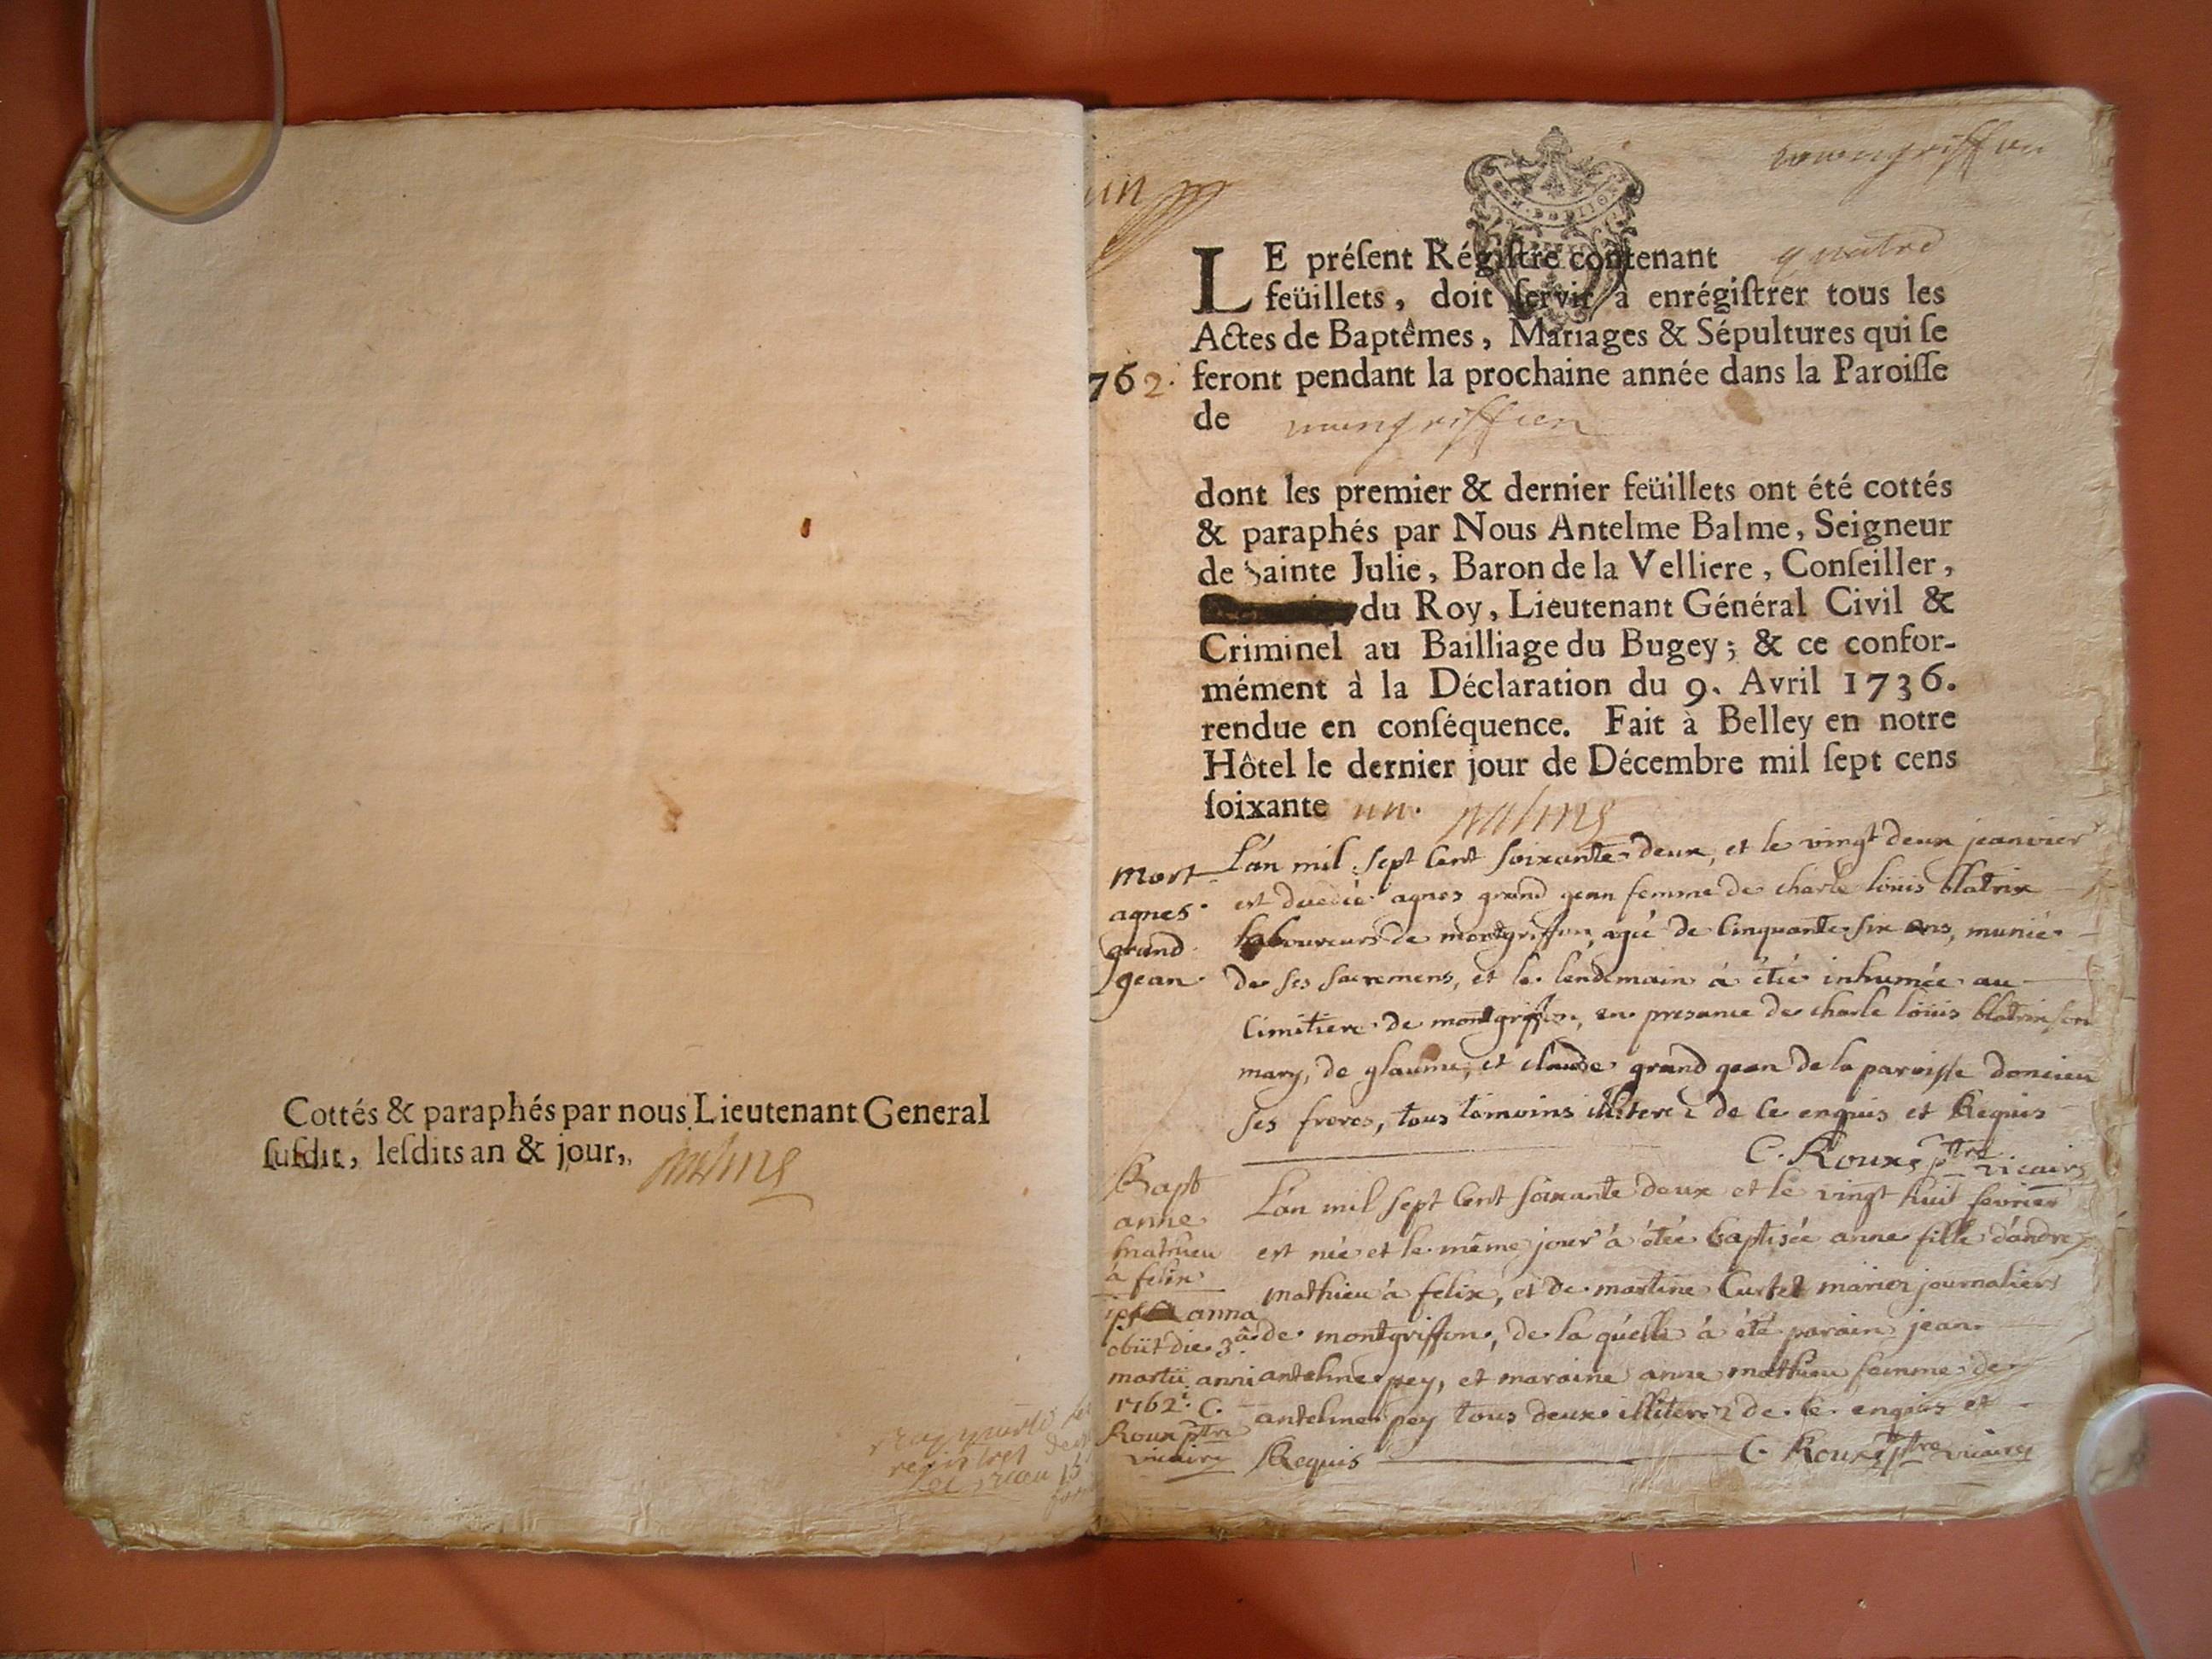 Cottés & paraphés par nous Lieutenant General
ſuſdit, leſdits an & jour,
un
quatre
LE préſent Régiſtre contenant
feüillets, doit ſervir à enrégiſtrer tous les
Actes de Baptêmes, Mariages & Sépultures qui ſe
762. feront pendant la prochaine année dans la Paroiſſe
de mongriffon
dont les premier & dernier feüillets ont été cottés
& paraphés par Nous Antelme Balme, Seigneur
de Sainte Julie, Baron de la Velliere, Conſeiller,
du Roy, Lieutenant Général Civil &
Criminel au Bailliage du Bugey; & ce confor-
mément à la Déclaration du 9. Avril 1736.
rendue en conſéquence. Fait à Belley en notre
Hôtel le dernier jour de Décembre mil ſept cens
ſoixante un. Balme
mort
agnes
grand
gean
L'an mil sept Cent soixante deux, et le vingt deux jeanvier
est decedée agnes grand gean femme de charle loüis blatrix
laboureurs de montgriffon, agée de Cinquante six ans, munie
de ses sacremens, et le lendemain à étée inhumée au
Cimitiere de montgriffon, en presance de charle loüis blatrix son
mary, de glaume, et claude grand gean de la paroisse doncieu
ses freres, tous temoins illiteréz de ce enquis et Requis
C. Roux ptre vicaire
Bapt
anne
mathieu
à felix
ipsa anna
obiit die 3a
martii anni
1762i. C.
Roux ptre
vicaire
L'an mil sept Cent soixante deux et le vingt huit fevrier
est née et le même jour à étée baptisée anne fille d'andre
mathieu à felix, et de martine Curtet mariez journaliers
de montgriffon, de la quelle à été parain jean
antelme pey, et maraine anne mathieu femme de
antelme pey tous deux illiteréz de ce enquis et
Requis C. Roux ptre vicaire